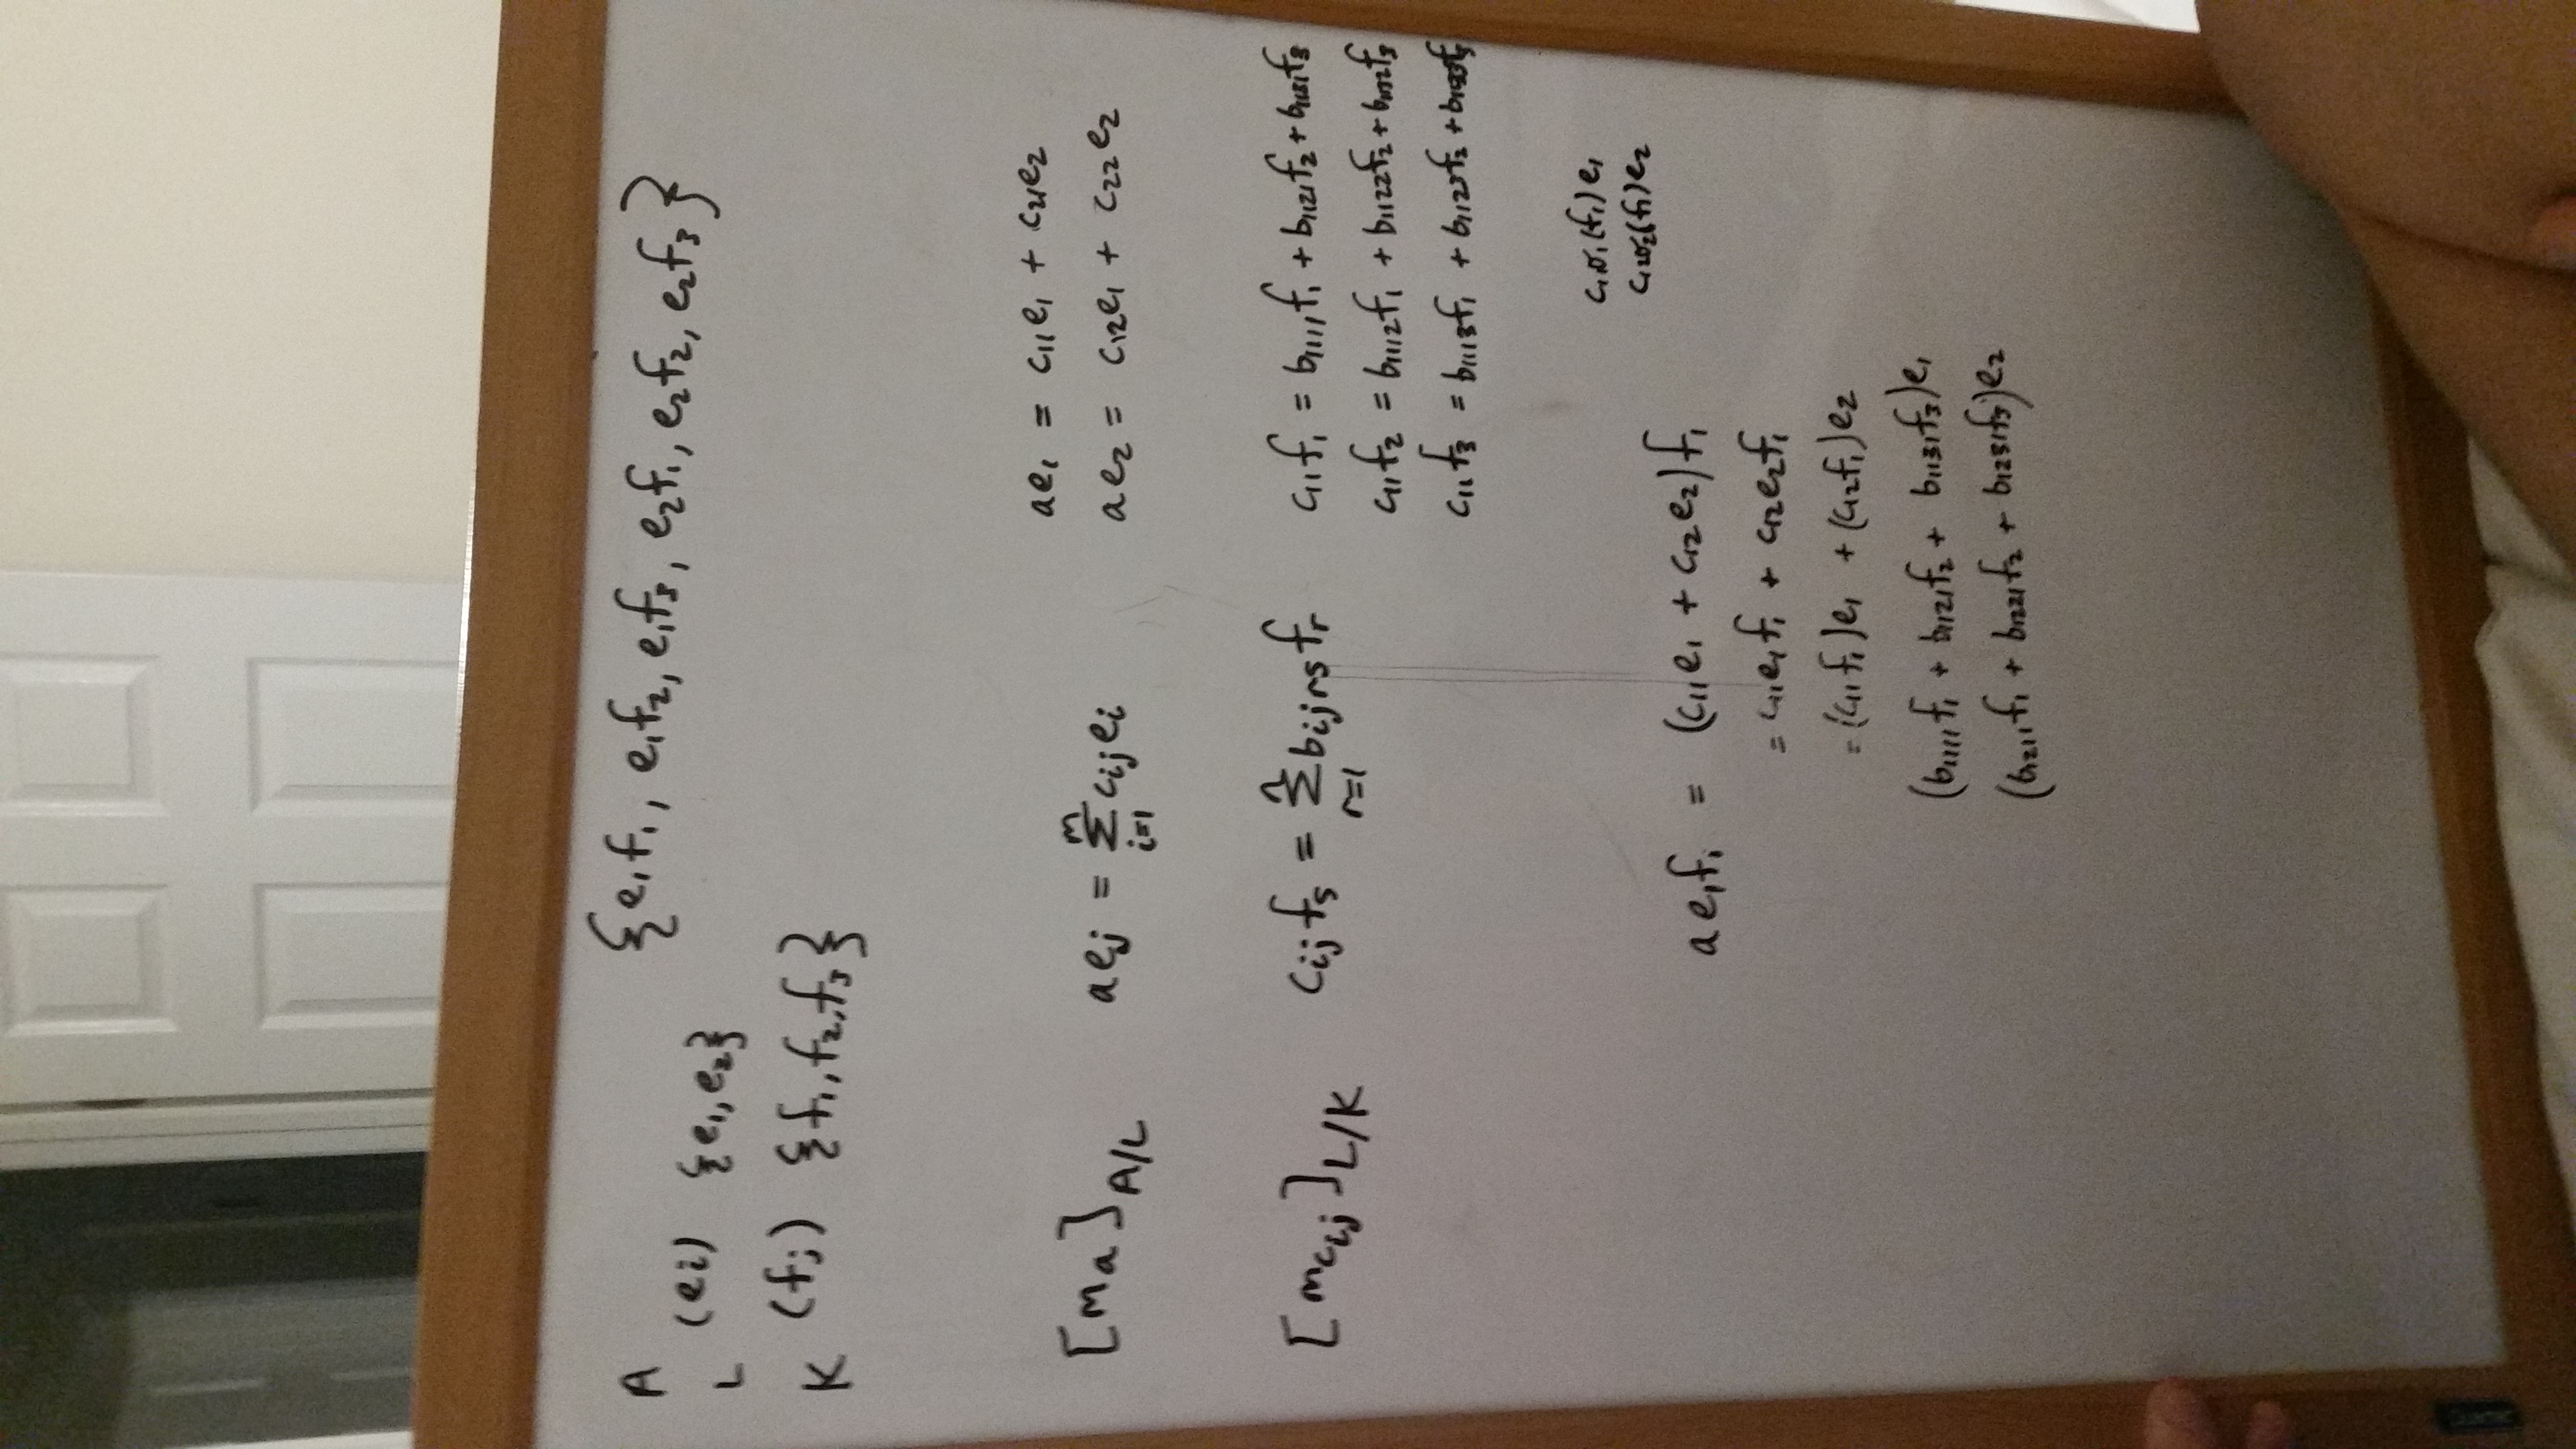 A
{e₁f₁, e₁f₂, e₁f₃, e₂f₁, e₂f₂, e₂f₃}
L (ei) {e₁, e₂}
K (fj) {f₁, f₂, f₃}
ae₁ = c₁₁e₁ + c₂₁e₂
[ma]A/L aej = Σᵐᵢ₌₁ cijei
ae₂ = c₁₂e₁ + c₂₂e₂
[mcij]L/K cijfs = Σⁿᵣ₌₁ bijrsfr
c₁₁f₁ = b₁₁₁₁f₁ + b₁₁₂₁f₂ + b₁₁₃₁f₃
c₁₁f₂ = b₁₁₁₂f₁ + b₁₁₂₂f₂ + b₁₁₃₂f₃
c₁₁f₃ = b₁₁₁₃f₁ + b₁₁₂₃f₂ +
c₁₁σ₁(f₁)e₁
c₁₂σ₂(f₁)e₂
ae₁f₁ = (c₁₁e₁ + c₁₂e₂)f₁
= c₁₁e₁f₁ + c₁₂e₂f₁
= (c₁₁f₁)e₁ + (c₁₂f₁)e₂
(b₁₁₁₁f₁ + b₁₁₂₁f₂ + b₁₁₃₁f₃)e₁
(b₁₂₁₁f₁ + b₁₂₂₁f₂ + b₁₂₃₁f₃)e₂